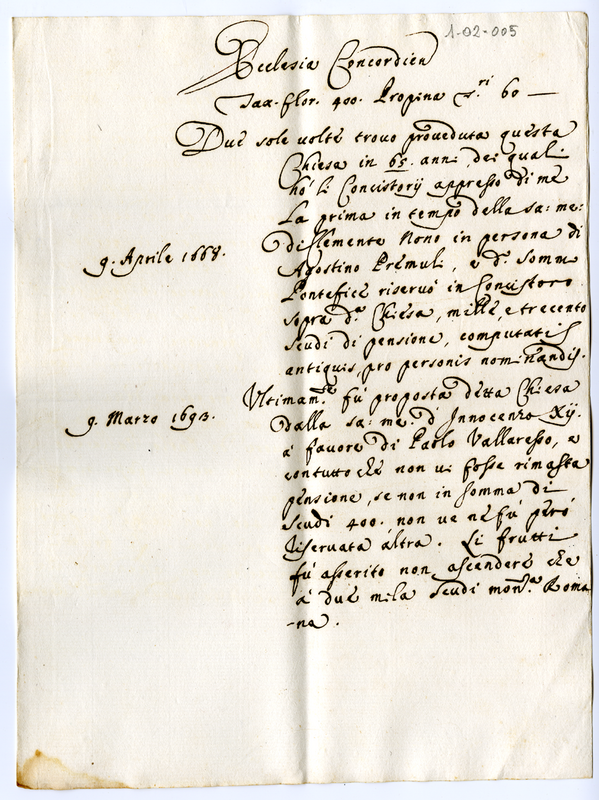 1-02-005
Ecclesia Concordien
Tax. flor. 400. Propina 60 —
Due sole volte trovo proveduta questa
Chiesa in 65. anni dei quali
hò li Concistorij appresso di me
La prima in tempo della sa: me:
di Clemente Nono in persona di
9. Aprile 1668.
Agostino Premuli, e d.º Somm
Pontefice riservò in Concistoro
sopra d.ª Chiesa, mille, e trecento
scudi di pensione, computatis
antiquis, pro personis nominandis.
Ultimam.te fù proposta detta Chiesa
9. Marzo 1693.
dalla sa: me: d'Innocenzo XII.
à favore di Paolo Vallaresso, e
contutto che non vi fosse rimasta
pensione, se non in somma di
scudi 400. non ve ne fù però
riservata altra. Li frutti
fù asserito non ascendere che
à due mila scudi mon.ta Roma
-na.